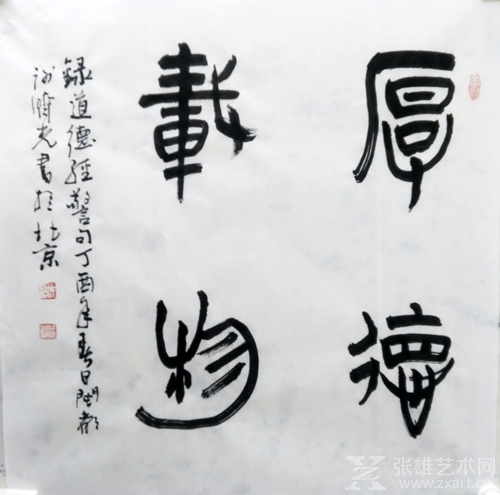 厚德
載物
録道德經警句丁酉年春日閩都
谢时光書於北京
张雄艺术网
www.zxart.cn